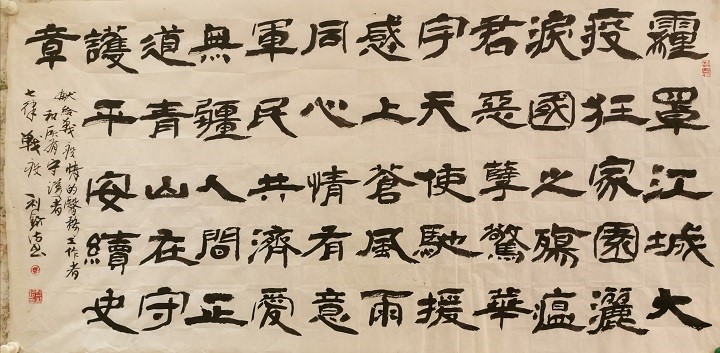 霾罩江城大
疫狂家園灑
淚國之殤瘟
君惡孽驚華
宇天使馳援
感上蒼風雨
同心情有意
軍民共濟愛
無疆人間正
道青山在守
護平安續史
章
献给戰疫情的醫務工作者
和所有守護者
七律 戰疫